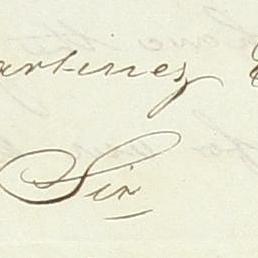 artinez
Sir